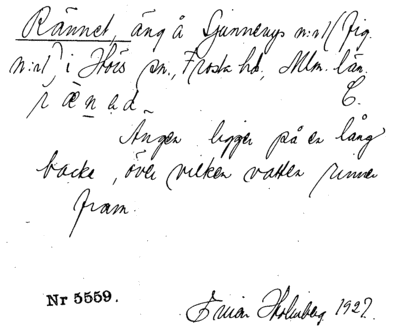 Rännet, äng å Sjunnerys n:r 1 (fig.
n:r 1), i Hörs sn., Frosta hd, Mlm. län.
C.
Ängen ligger på en lång
backe, över vilken vatten rinner
fram.
Nr 5559. Holmberg 1927.